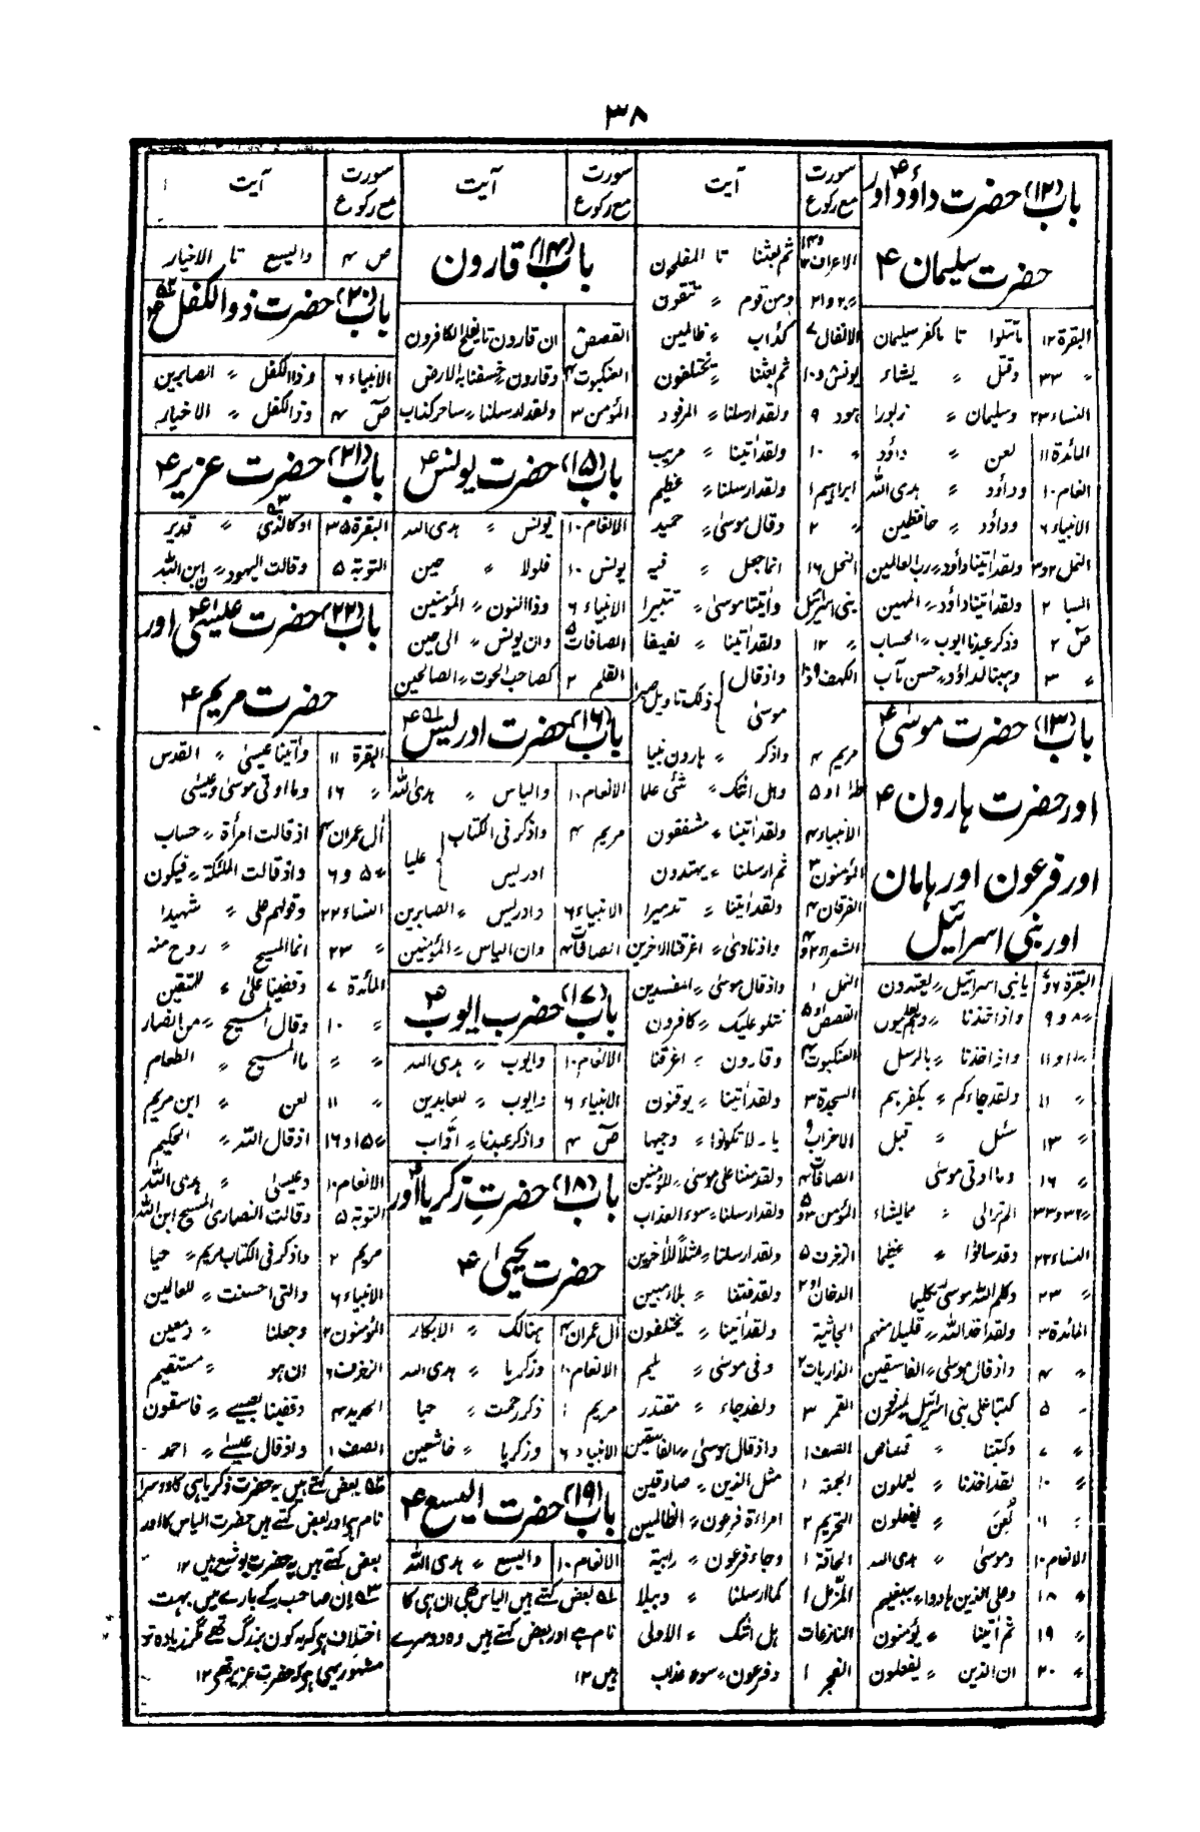 ۳۸
باب (۱۲) حضرت داؤدؑ اور
حضرت سلیمانؑ
البقرۃ ۱۲ ماتتلوا تا ماکفر سلیمان
〃 ۳۳ وقتل 〃 یشاء
النساء ۲۳ وسلیمان 〃 زبورا
المائدۃ ۱۱ لعن 〃 داؤد
انعام ۱۰ وداؤد 〃 ہدی اللہ
الانبیاء ۶ وداؤد 〃 حافظین
النمل ۲و۳ ولقد اٰتینا داؤد 〃 رب العالمین
السبا ۲ ولقد اٰتینا داؤد 〃 المہین
صٓ ۲ وذکر عبدنا ایوب 〃 الحساب
〃 ۳ ووہبنا لداؤد 〃 حسن مآب
باب (۱۳) حضرت موسیٰؑ
اور حضرت ہارونؑ
اور فرعون اور ہامان
اور بنی اسرائیل
البقرۃ ۶و یا بنی اسرائیل 〃 یعتدون
〃 ۸ و ۹ واذ اخذنا 〃
〃 ۱۰ و ۱۱ واذ اخذنا 〃 بالرسل
〃 ۱۱ ولقد جاءکم 〃 بکفرہم
〃 ۱۳ سئل 〃 قبل
〃 ۱۶ وما اوتی موسیٰ
〃 ۳۲و۳۳ الم ترالی 〃 ممایشاء
النساء ۲۲ وقد سالوا 〃 عظیما
〃 ۲۳ وکلم اللہ موسیٰ تکلیما
المائدۃ ۳ ولقد اخذ اللہ 〃 قلیلا منہم
〃 ۴ واذ قال موسیٰ 〃 الفاسقین
〃 ۵ کتبنا علی بنی اسرائیل 〃 لمسرفون
〃 ۷ وکتبنا 〃 قصاص
〃 ۱۰ لقد اخذنا 〃 یعملون
〃 ۱۱ لُعِنَ 〃 یفعلون
الانعام ۱۰ وموسیٰ 〃 ہدی اللہ
〃 ۱۸ وعلی الذین ہادوا 〃 ببغیہم
〃 ۱۹ ثم اٰتینا 〃 یؤمنون
〃 ۲۰ ان الذین 〃 یفعلون
سورت مع رکوع آیت
الاعراف ۱۳و ثم بعثنا تا المفلحون
〃 ۲۰ و ۲۱ ومن قوم 〃 تتقون
الانفال ۷ کدأب 〃 ظالمین
یونس ۱۰ ثم بعثنا 〃 یختلفون
ہود ۹ ولقد ارسلنا 〃 المرفود
〃 ۱۰ ولقد اٰتینا 〃 مریب
ابراہیم ۱ ولقد ارسلنا 〃 عظیم
〃 ۲ وقال موسیٰ 〃 حمید
النحل ۱۶ انما جعل 〃 فیہ
بنی اسرائیل واٰتینا موسیٰ 〃 تتبیرا
〃 ۱۲ ولقد اٰتینا 〃 لفیفا
الکہف ۹و۱۰ واذ قال موسیٰ } ذلک تاویل صبرا
مریم ۴ واذکر 〃 ہارون نبیا
طٰہٰ ۱و۵ وہل اتٰک 〃 شئی علما
الانبیاء ۴ ولقد اٰتینا 〃 مشفقون
المؤمنون ۳ ثم ارسلنا 〃 یہتدون
الفرقان ۴ ولقد اٰتینا 〃 تدمیرا
الشعراء ۲و۴ واذ نادیٰ 〃 اغرقنا الاٰخرین
النمل ۱ واذ قال موسیٰ 〃 المفسدین
القصص ۱و۵ نتلو علیک 〃 کافرون
العنکبوت ۴ وقارون 〃 اغرقنا
السجدۃ ۳ ولقد اٰتینا 〃 یوقنون
الاحزاب ۹ یا 〃 لا تکونوا 〃 وجیہا
الصافات ۴ ولقد مننا علی موسیٰ 〃 المؤمنین
المؤمن ۳و۵ ولقد ارسلنا 〃 سوء العذاب
الزخرف ۵ ولقد ارسلنا 〃 مثلاً للاٰخرین
الدخان ۱و۲ ولقد فتنا 〃 بلاء مبین
الجاثیۃ ولقد اٰتینا 〃 یختلفون
الذاریات ۲ وفی موسیٰ 〃 ملیم
القمر ۳ ولقد جاء 〃 مقتدر
الصف ۱ واذ قال موسیٰ 〃 الفاسقین
الجمعۃ ۱ مثل الذین 〃 صادقین
التحریم ۲ امراۃ فرعون 〃 الظالمین
الحاقۃ ۱ وجاء فرعون 〃 رابیۃ
المزّمل ۱ کما ارسلنا 〃 وبیلا
النازعات ہل اتٰک 〃 الاولی
الفجر ۱ وفرعون 〃 سوط عذاب
سورت مع رکوع آیت
باب (۱۴) قارون
القصص ان قارون تا یفلح الکافرون
العنکبوت ۴ وقارون 〃 خسفنا بہ الارض
المؤمن ۳ ولقد ارسلنا 〃 ساحر کذاب
باب (۱۵) حضرت یونسؑ
الانعام ۱۰ یونس 〃 ہدی اللہ
یونس ۱۰ فلولا 〃 حین
الانبیاء ۶ وذا النون 〃 المؤمنین
الصافات ۵ وان یونس 〃 الی حین
القلم ۲ کصاحب الحوت 〃 الصالحین
باب (۱۶) حضرت ادریسؑ ۵۱
الانعام ۱۰ والیاس 〃 ہدی اللہ
مریم ۴ واذکر فی الکتاب ادریس } علیا
الانبیاء ۶ وادریس 〃 الصابرین
الصافات ۴ وان الیاس 〃 المؤمنین
باب (۱۷) حضرت ایوبؑ
الانعام ۱۰ وایوب 〃 ہدی اللہ
الانبیاء ۶ وایوب 〃 للعابدین
صٓ ۴ واذکر عبدنا 〃 اوّاب
باب (۱۸) حضرتِ زکریاؑ اور
حضرت یحییٰؑ
اٰل عمران ۴ ہنالک 〃 الابکار
الانعام ۱۰ وزکریا 〃 ہدی اللہ
مریم ۱ ذکر رحمت 〃 حیا
الانبیاء ۶ وزکریا 〃 خاشعین
باب (۱۹) حضرت الیسعؑ
الانعام ۱۰ والیسع 〃 ہدی اللہ
۵۱ بعض کہتے ہیں الیاس بھی ان ہی کا
نام ہے اور بعض کہتے ہیں وہ دوسرے
ہیں ۱۲
سورت مع رکوع آیت
ص ۴ والیسع تا الاخیار
باب (۲۰) حضرت ذوالکفلؑ ۵۲
الانبیاء ۶ وذا الکفل 〃 الصابرین
صٓ ۴ وذا الکفل 〃 الاخیار
باب (۲۱) حضرت عزیرؑ
البقرۃ ۳۵ اوکالذی ۵۳ 〃 قدیر
التوبۃ ۵ وقالت الیہود 〃 ابن اللہ
باب (۲۲) حضرت عیسیٰؑ اور
حضرت مریمؑ
البقرۃ ۱۱ واٰتینا عیسیٰ 〃 القدس
〃 ۱۶ وما اوتی موسیٰ وعیسٰی
اٰل عمران ۴ اذ قالت امرأۃ 〃 حساب
〃 ۵ و ۶ واذ قالت الملئکۃ 〃 فیکون
النساء ۲۲ وقولہم علی 〃 شہیدا
〃 ۲۳ انما المسیح 〃 روح منہ
المائدۃ ۷ وقفینا علیٰ 〃 للمتقین
〃 ۱۰ وقال المسیح 〃 من انصار
〃 〃 ما المسیح 〃 الطعام
〃 ۱۱ لعن 〃 ابن مریم
〃 ۱۵ و ۱۶ اذ قال اللہ 〃 الحکیم
الانعام ۱۰ وعیسیٰ 〃 ہدی اللہ
التوبۃ ۵ وقالت النصاری المسیح ابن اللہ
مریم ۲ واذکر فی الکتاب مریم 〃 حیا
الانبیاء ۶ والتی احصنت 〃 للعالمین
المؤمنون ۳ وجعلنا 〃 ومعین
الزخرف ۶ ان ہو 〃 مستقیم
الحدید ۴ وقفینا بعیسے 〃 فاسقون
الصف ۱ واذ قال عیسے 〃 احمد
۵۲ بعض کہتے ہیں یہ حضرت ذکریا ہی کا دوسرا
نام ہے اور بعض کہتے ہیں حضرت الیاس کا اور
بعض کہتے ہیں یہ حضرت یوشع ہیں ۱۲
۵۳ اِن صاحب کے بارے میں بہت
اختلاف ہے کہ یہ کون بزرگ تھے مگر زیادہ تو
مشہور یہی ہے کہ حضرت عزیر تھے ۱۲